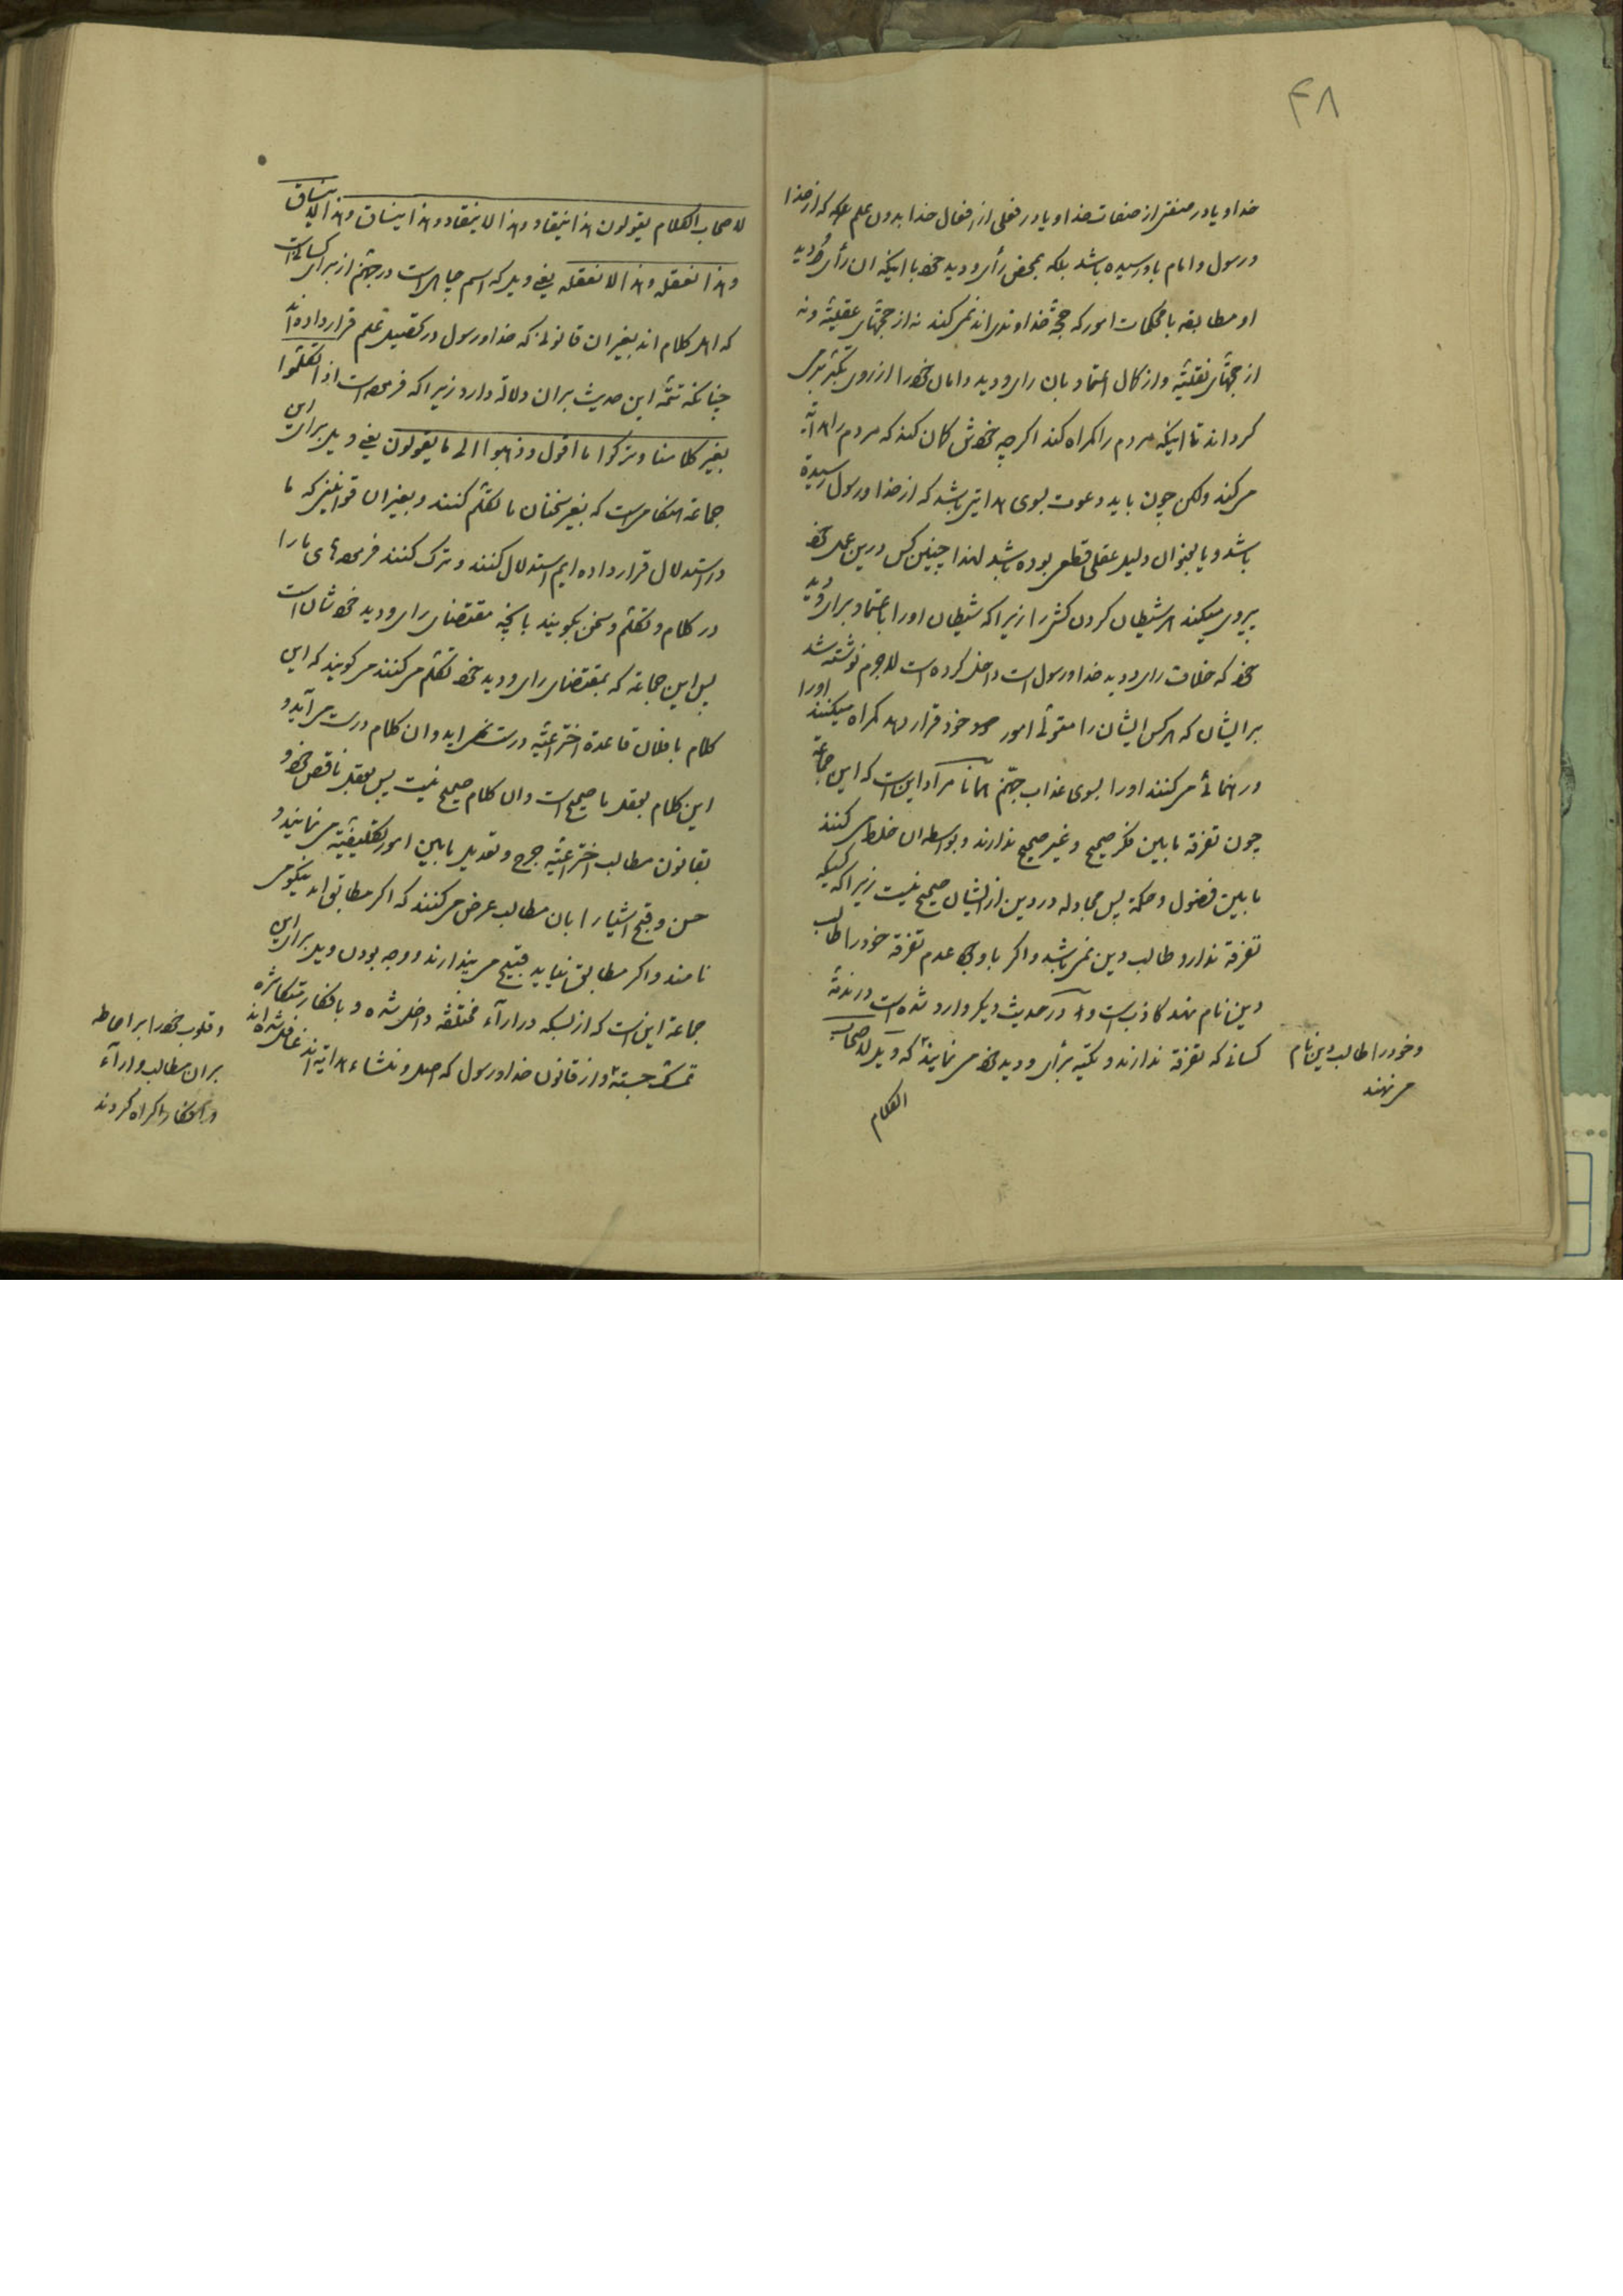 ۴۸
خدا و یا در صفتی از صفات خدا و یا در فعلی از افعال خدا بدون علمی که از خدا
و رسول و امام باو رسیده باشد بلکه بمحض رأی و دید خود با اینکه ان رأی و دید
او مطابقه با محکمات امور که حجة خداوندی‌اند نمی‌کند نه از حجتهای عقلیّه و نه
از حجتهای نقلیّه و از کمال اعتماد بان رای و دید و امان خود را از روی تکبّر برتری
کرداند تا اینکه مردم را کمراه کند اکرچه خودش کمان کند که مردم را هدایة
می‌کند ولکن چون باید دعوت بسوی هدایتی باشد که از خدا و رسول رسیده
باشد و یا بعنوان دلیل عقلی قطعی بوده باشد لهذا چنین کس درین عمل خود
پیروی میکند هر شیطان کردن کش را زیرا که شیطان او را باعتماد برای و دید
خود که خلاف رای و دید خدا و رسول است داخل کرده است لاجرم نوشته شد
بر ایشان که هر کس ایشان را متولّی امور خود قرار دهد کمراه میکنند او را
و رهنمائی می‌کنند او را بسوی عذاب جهنّم همانا مراد این است که این جماعة
چون تفرقه مابین فکر صحیح و غیر صحیح ندارند و بواسطه ان خلط می‌کنند
مابین فضول و حکمة پس مجادله در دین از ایشان صحیح نیست زیرا که کسیکه
تفرقة ندارد طالب دین نمی‌باشد و اکر با وجود عدم تفرقة خود را طالب
دین نام نهد کاذب است و در حدیث دیکر وارد شده است در مذمّة
کسانی که تفرقة ندارند و تکیه برأی و دید خود می‌نمایند که ویل لاصحاب
و خود را طالب دین نام
می‌نهند
الکلام
لاصحاب الکلام یقولون هذا ینقاد و هذا لا ینقاد و هذا ینساق و هذا لا ینساق
و هذا نعقله و هذا لا نعقله یعنی ویل که اسم چاهی است در جهنّم از برای کسانی است
که اهل کلام اند بغیر ان قانونی که خدا و رسول در کیفیة تکلم قرار داده‌اند
چنانکه تتمّه این حدیث بران دلالة دارد زیرا که فرموده است اذا تکلّموا
بغیر کلامنا و ترکوا ما اقول و ذهبوا الی ما یقولون یعنی ویل برای این
جماعة هنکامی است که بغیر سخنان ما تکلّم کنند و بغیر ان قوانینی که ما
در استدلال قرار داده ایم استدلال کنند و ترک کنند فرموده‌های ما را
در کلام و تکلّم و سخن بکویند بانچه مقتضای رای و دید خودشان است
پس این جماعة که بمقتضای رای و دید خود تکلّم می‌کنند می‌کویند که این
کلام با فلان قاعده اختراعیّه درست نمی‌اید و ان کلام درست می‌آید و
این کلام بعقل ما صحیح است و ان کلام صحیح نیست پس بعقل ناقص خود و
بقانون مطالب اختراعیّه جرح و تعدیل مابین امور تکلیفیّه می‌نمایند و
حسن و قبح اشیا را بان مطالب عرض می‌کنند که اکر مطابق اید نیکو می
نامند و اکر مطابق نیاید قبیح می‌پندارند و وجه بودن ویل برای این
جماعة این است که از بسکه در ارآء مختلفه داخل شده و بافکار متکاثره
تمسک جسته و از قانون خدا و رسول که اصل و منشاء هدایة اند غافل شده‌اند
و قلوب خود را بر احاطه
بران مطالب و ارآء
و افکار وا کراه کردند